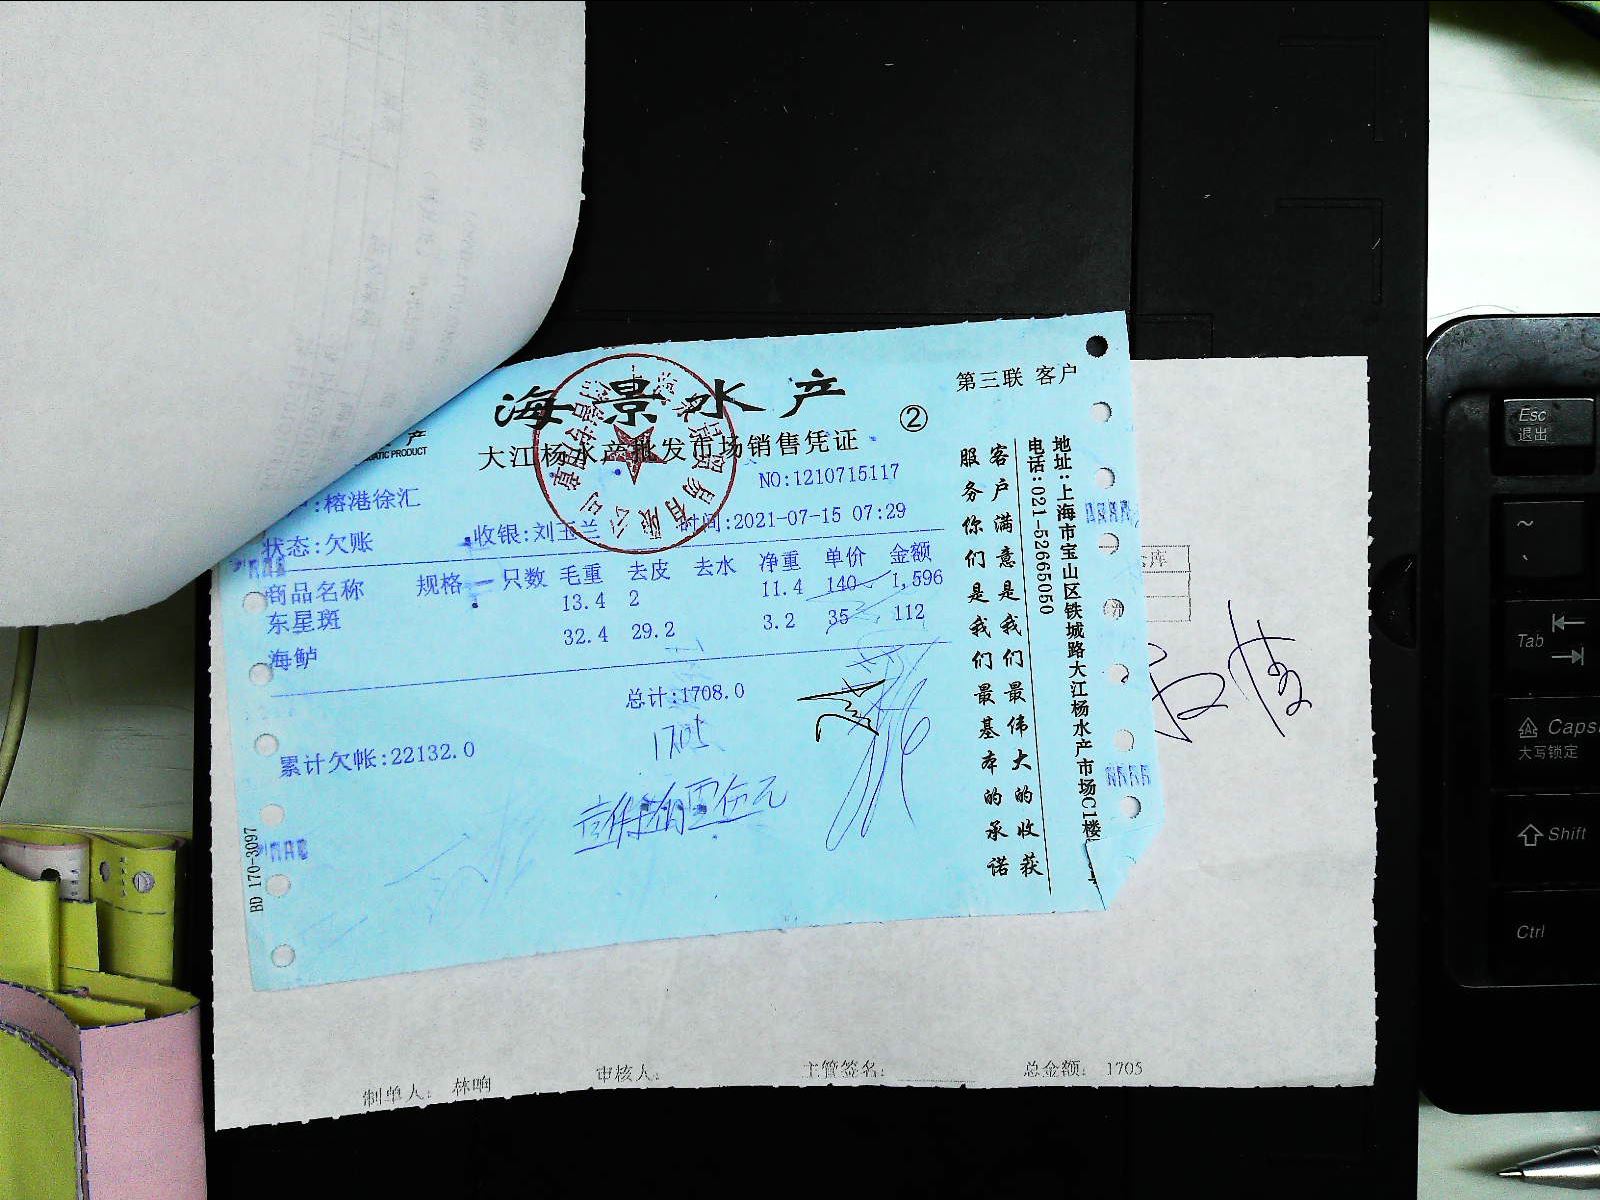 海景水产
第三联 客户
大江杨水产批发市场销售凭证
②
产
ATIC PRODUCT
NO:1210715117
:榕港徐汇
状态:欠账
收银:刘玉兰
时间:2021-07-15 07:29
商品名称 规格 只数 毛重 去皮 去水 净重 单价 金额
东星斑 13.4 2 11.4 140 1,596
海鲈 32.4 29.2 3.2 35 112
总计:1708.0
1705
累计欠帐:22132.0
BD 170-3097
客户满意是我们最伟大的收获
服务你们是我们最基本的承诺
地址:上海市宝山区铁城路大江杨水产市场C1楼
电话:021-52665050
库
制单人: 林响
审核人:
主管签名:
总金额: 1705
Esc
退出
~
Tab
Caps
大写锁定
Shift
Ctrl